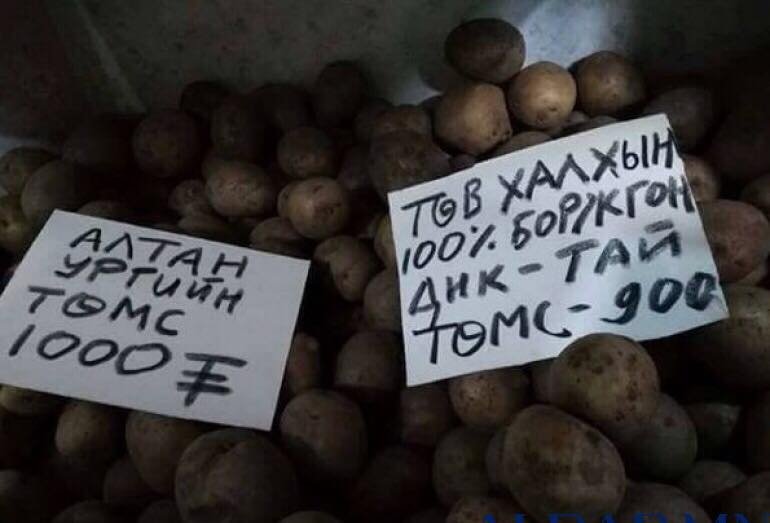 АЛТАН
УРГИЙН
ТӨМС
1000 ₮
ТӨВ ХАЛХЫН
100% БОРЖГОН
ДНК-ТАЙ
ТӨМС-900